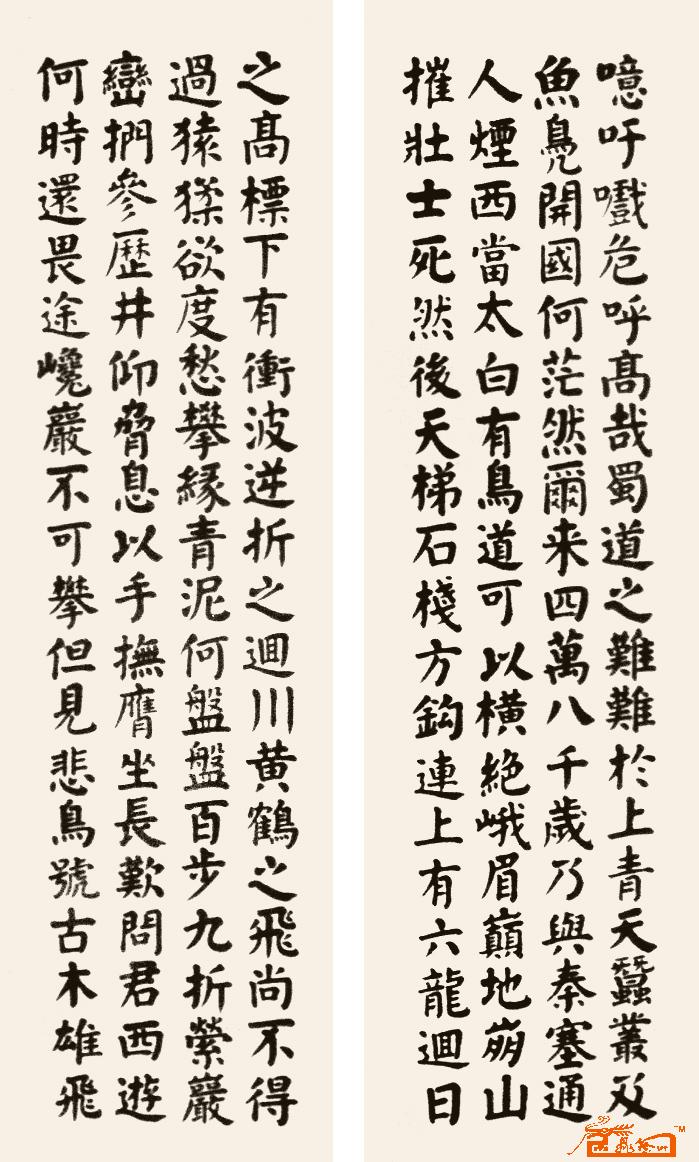 噫吁嚱危呼髙哉蜀道之難難於上青天蠶叢及
魚鳧開國何茫然爾来四萬八千歲乃與秦塞通
人煙西當太白有鳥道可以横絶峨眉巔地崩山
摧壯士死然後天梯石棧方鈎連上有六龍迴日
之髙標下有衝波逆折之迴川黄鶴之飛尚不得
過猿猱欲度愁攀縁青泥何盤盤百步九折縈巖
巒捫參歷井仰脅息以手撫膺坐長歎問君西遊
何時還畏途巉巖不可攀但見悲鳥號古木雄飛